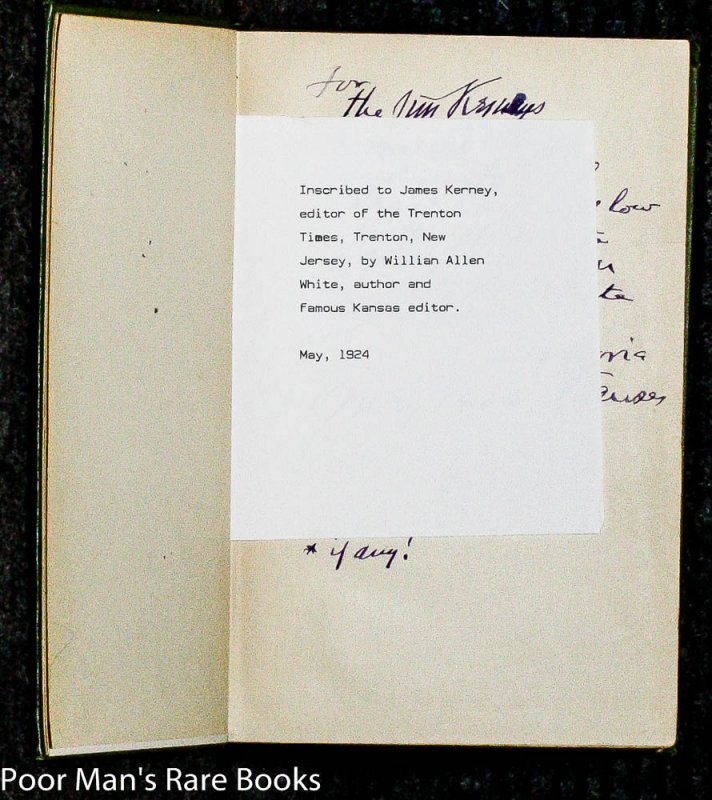 For
the Jim Kerneys
low
Inscribed to James Kerney,
editor of the Trenton
Times, Trenton, New
Jersey, by Willian Allen
White, author and
famous Kansas editor.
May, 1924
* if any!
Poor Man's Rare Books